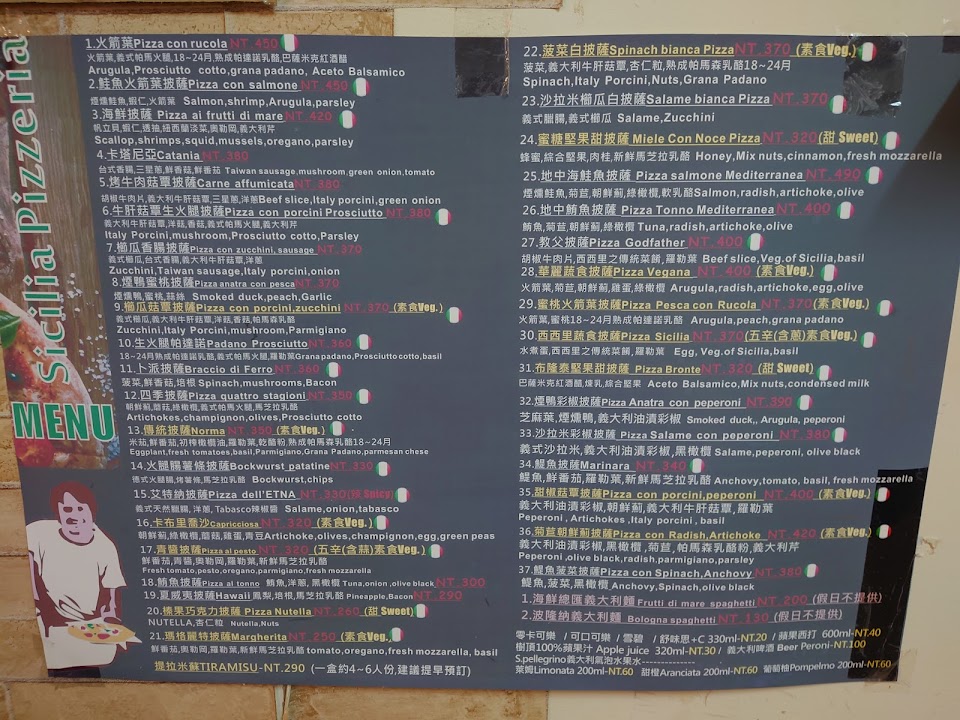 Sicilia Pizzeria
MENU
1.火箭葉Pizza con rucola NT.450
火箭葉,義式帕馬火腿,18~24月,熟成帕達諾乳酪,巴薩米克紅酒醋
Arugula,Prosciutto cotto,grana padano, Aceto Balsamico
2.鮭魚火箭葉披薩Pizza con salmone NT.450
煙燻鮭魚,蝦仁,火箭葉 Salmon,shrimp,Arugula,parsley
3.海鮮披薩 Pizza ai frutti di mare NT.420
帆立貝,蝦仁,透抽,紐西蘭淡菜,奧勒岡,義大利芹
Scallop,shrimps,squid,mussels,oregano,parsley
4.卡塔尼亞Catania NT.380
台式香腸,三星蔥,鮮香菇,鮮番茄 Taiwan sausage,mushroom,green onion,tomato
5.烤牛肉菇蕈披薩Carne affumicata NT.380
胡椒牛肉片,義大利牛肝菇蕈,三星蔥,洋蔥Beef slice,Italy porcini,green onion
6.牛肝菇蕈生火腿披薩Pizza con porcini Prosciutto NT.380
義大利牛肝菇蕈,洋菇,香菇,義式帕馬火腿,義大利芹
Italy Porcini,mushroom,Prosciutto cotto,Parsley
7.櫛瓜香腸披薩Pizza con zucchini,sausage NT.370
義式櫛瓜,台式香腸,義大利牛肝菇蕈,洋蔥
Zucchini,Taiwan sausage,Italy porcini,onion
8.煙鴨蜜桃披薩Pizza anatra con pesca NT.370
煙燻鴨,蜜桃,蒜絲 Smoked duck,peach,Garlic
9.櫛瓜菇蕈披薩Pizza con porcini,zucchini NT.370 (素食Veg.)
義式櫛瓜,義大利牛肝菇蕈,洋菇,香菇,帕馬森乳酪
Zucchini,Italy Porcini,mushroom,Parmigiano
10.生火腿帕達諾Padano Prosciutto NT.360
18~24月熟成帕達諾乳酪,義式帕馬火腿,羅勒葉Grana padano,Prosciutto cotto,basil
11.卜派披薩Braccio di Ferro NT.360
菠菜,鮮香菇,培根 Spinach,mushrooms,Bacon
12.四季披薩Pizza quattro stagioni NT.350
朝鮮薊,蘑菇,綠橄欖,義式帕馬火腿,馬芝拉乳酪
Artichokes,champignon,olives,Prosciutto cotto
13.傳統披薩Norma NT.350 (素食Veg.)
米茄,鮮番茄,初榨橄欖油,羅勒葉,乾酪粉,熟成帕馬森乳酪18~24月
Eggplant,fresh tomatoes,basil,Parmigiano,Grana Padano,parmesan chese
14.火腿腸薯條披薩Bockwurst patatine NT.330
德式火腿腸,烤薯條,馬芝拉乳酪 Bockwurst,chips
15.艾特納披薩Pizza dell'ETNA NT.330(辣 Spicy)
義式天然臘腸,洋蔥,Tabasco辣椒醬 Salame,onion,tabasco
16.卡布里喬沙Capricciosa NT.320 (素食Veg.)
朝鮮薊,綠橄欖,蘑菇,雞蛋,青豆Artichoke,olives,champignon,egg,green peas
17.青醬披薩Pizza al pesto NT.320 (五辛(含蒜)素食Veg.)
鮮番茄,青醬,奧勒岡,羅勒葉,新鮮馬芝拉乳酪
Fresh tomato,pesto,oregano,parmigiano,fresh mozzarella
18.鮪魚披薩Pizza al tonno 鮪魚,洋蔥,黑橄欖 Tuna,onion,olive black NT.300
19.夏威夷披薩Hawaii 鳳梨,培根,馬芝拉乳酪 Pineapple,Bacon NT.290
20.榛果巧克力披薩 Pizza Nutella NT.260 (甜 Sweet)
NUTELLA,杏仁粒 Nutella,Nuts
21.瑪格麗特披薩Margherita NT.250 (素食Veg.)
鮮番茄,奧勒岡,羅勒葉,新鮮馬芝拉乳酪 tomato,oregano,fresh mozzarella, basil
提拉米蘇TIRAMISU-NT.290 (一盒約4~6人份,建議提早預訂)
22.菠菜白披薩Spinach bianca Pizza NT.370 (素食Veg.)
菠菜,義大利牛肝菇蕈,杏仁粒,熟成帕馬森乳酪18~24月
Spinach,Italy Porcini,Nuts,Grana Padano
23.沙拉米櫛瓜白披薩Salame bianca Pizza NT.370
義式臘腸,義式櫛瓜 Salame,Zucchini
24.蜜糖堅果甜披薩 Miele Con Noce Pizza NT.320(甜 Sweet)
蜂蜜,綜合堅果,肉桂,新鮮馬芝拉乳酪 Honey,Mix nuts,cinnamon,fresh mozzarella
25.地中海鮭魚披薩 Pizza salmone Mediterranea NT.490
煙燻鮭魚,荀苣,朝鮮薊,綠橄欖,軟乳酪Salmon,radish,artichoke,olive
26.地中鮪魚披薩 Pizza Tonno Mediterranea NT.400
鮪魚,荀苣,朝鮮薊,綠橄欖 Tuna,radish,artichoke,olive
27.教父披薩Pizza Godfather NT.400
胡椒牛肉片,西西里之傳統菜餚,羅勒葉 Beef slice,Veg.of Sicilia,basil
28.華麗蔬食披薩Pizza Vegana NT.400 (素食Veg.)
火箭葉,菊苣,朝鮮薊,雞蛋,綠橄欖 Arugula,radish,artichoke,egg,olive
29.蜜桃火箭葉披薩 Pizza Pesca con Rucola NT.370(素食Veg.)
火箭葉,蜜桃18~24月熟成帕達諾乳酪 Arugula,peach,grana padano
30.西西里蔬食披薩Pizza Sicilia NT.370(五辛(含蔥)素食Veg.)
水煮蛋,西西里之傳統菜餚,羅勒葉 Egg,Veg.of Sicilia,basil
31.布隆泰堅果甜披薩 Pizza Bronte NT.320 (甜 Sweet)
巴薩米克紅酒醋,煉乳,綜合堅果 Aceto Balsamico,Mix nuts,condensed milk
32.煙鴨彩椒Pizza Anatra con peperoni NT.390
芝麻葉,煙燻鴨,義大利油漬彩椒 Smoked duck,, Arugula, peperoni
33.沙拉米彩椒披薩 Pizza Salame con peperoni NT.380
義式沙拉米,義大利油漬彩椒,黑橄欖 Salame,peperoni, olive black
34.鯷魚披薩Marinara NT.340
鯷魚,鮮番茄,羅勒葉,新鮮馬芝拉乳酪 Anchovy,tomato, basil, fresh mozzarella
35.甜椒菇蕈披薩Pizza con porcini,peperoni NT.400 (素食Veg.)
義大利油漬彩椒,朝鮮薊,義大利牛肝菇蕈,羅勒葉
Peperoni , Artichokes ,Italy porcini , basil
36.菊苣朝鮮薊披薩Pizza con Radish,Artichoke NT.420 (素食Veg.)
義大利油漬彩椒,黑橄欖,菊苣, 帕馬森乳酪粉,義大利芹
Peperoni ,olive black,radish,parmigiano,parsley
37.鯷魚菠菜披薩Pizza con Spinach,Anchovy NT.380
鯷魚,菠菜,黑橄欖 Anchovy,Spinach,olive black
1.海鮮總匯義大利麵 Frutti di mare spaghetti NT.200 (假日不提供)
2.波隆納義大利麵 Bologna spaghetti NT.130 (假日不提供)
零卡可樂 / 可口可樂 / 雪碧 / 舒味思+C 330ml-NT.20 / 蘋果西打 600ml-NT.40
樹頂100%蘋果汁 Apple juice 320ml-NT.30 / 義大利啤酒 Beer Peroni-NT.100
S.pellegrino義大利氣泡水果水--------------
萊姆Limonata 200ml-NT.60 甜橙Aranciata 200ml-NT.60 葡萄柚Pompelmo 200ml-NT.60